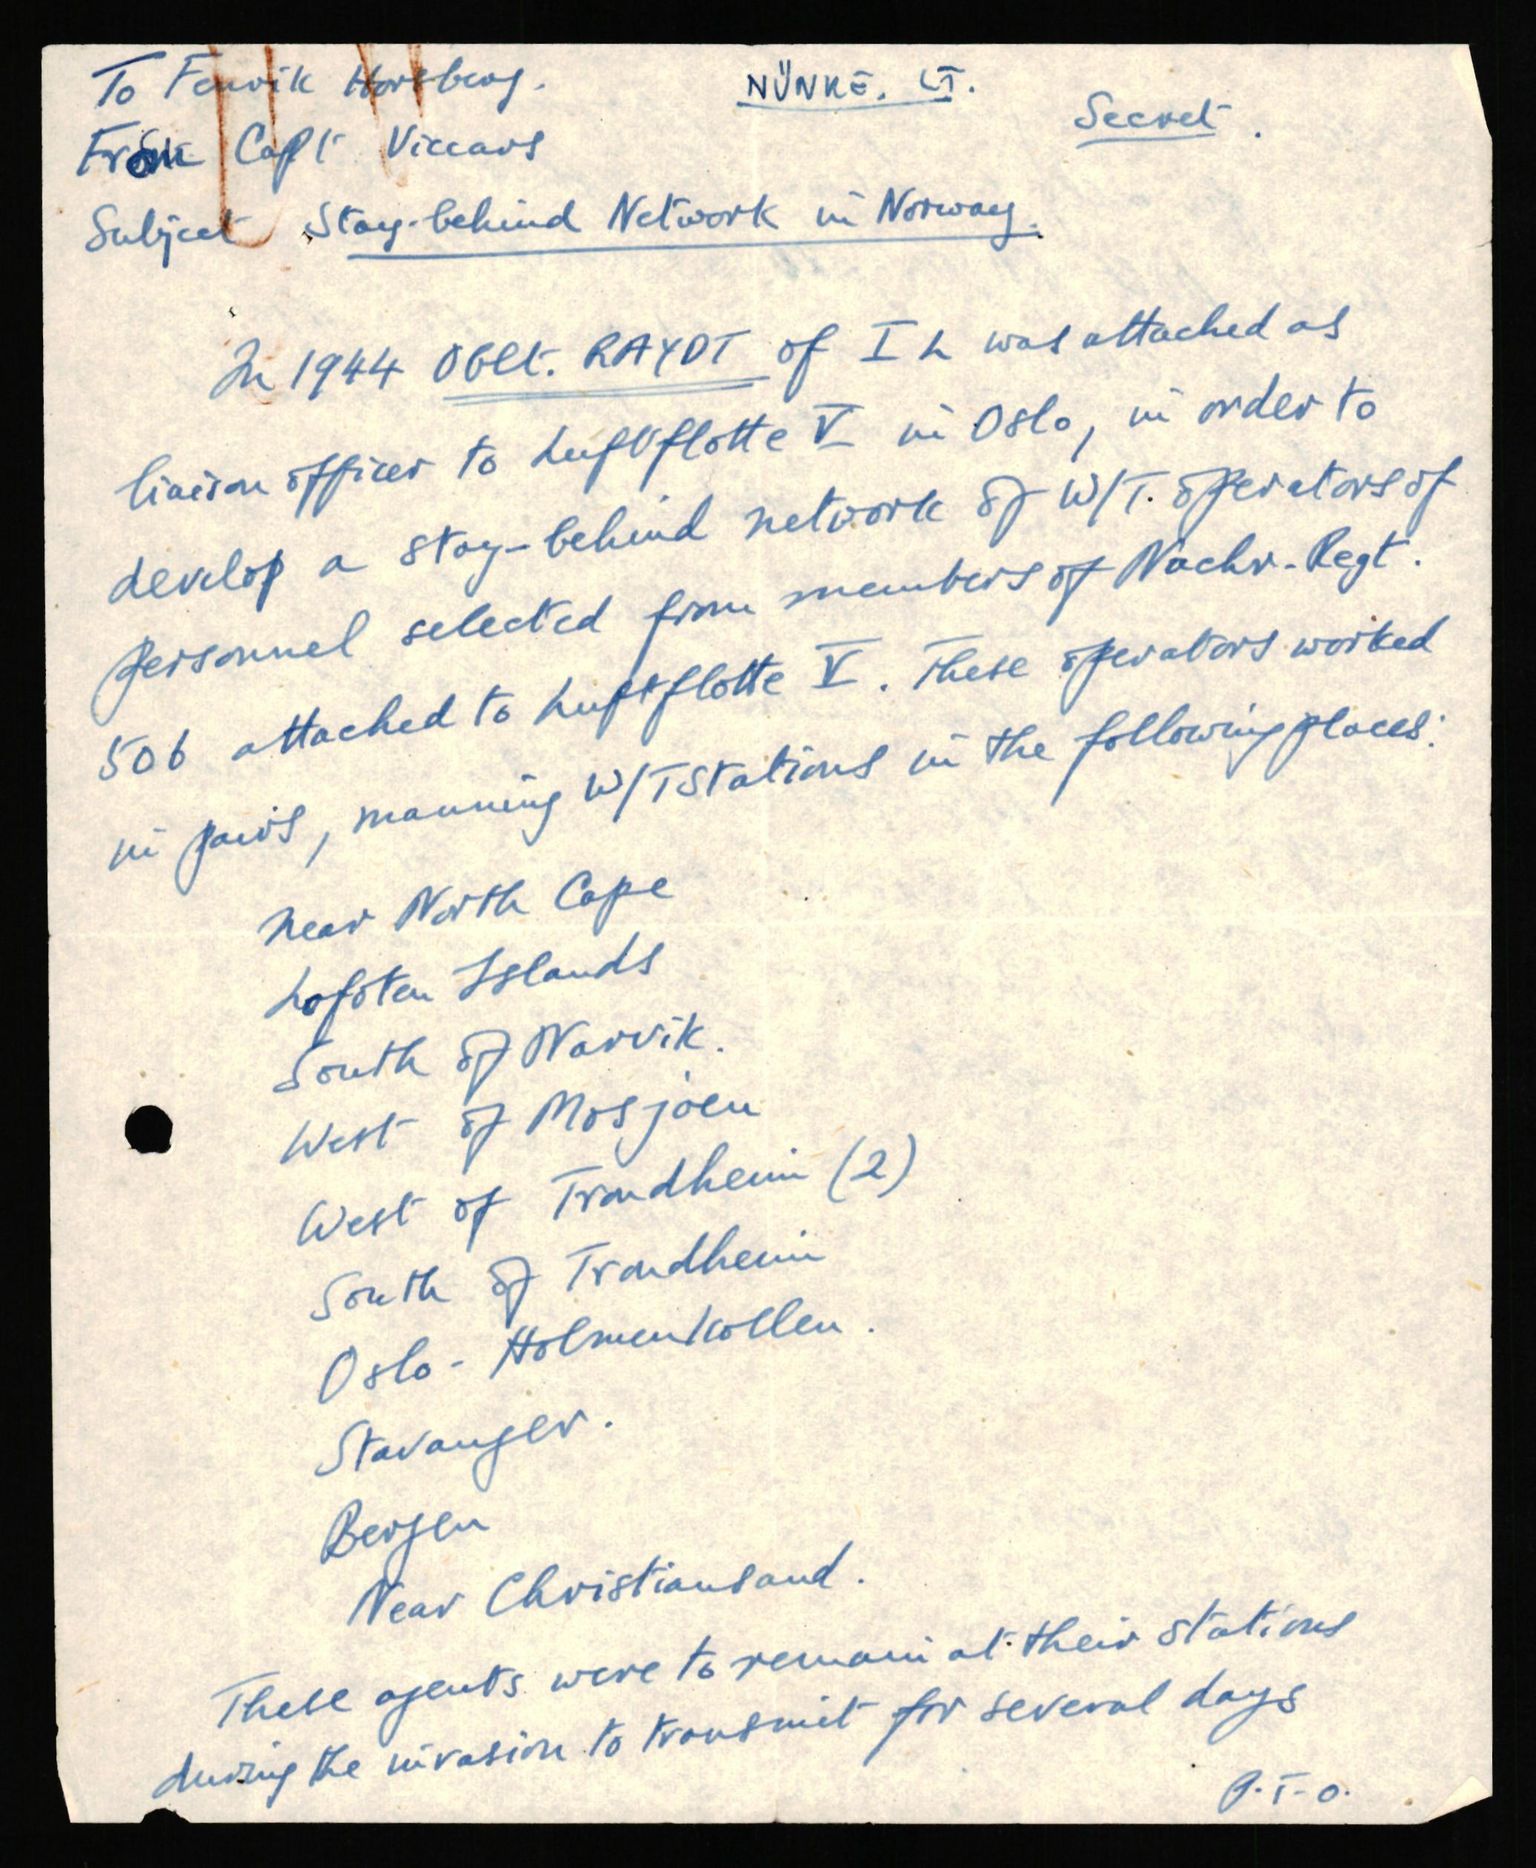 To Fenvik Horsberg.
NÜNKE. LT.
Secret.
From Capt Viccars
Subject Stay-behind Network in Norway.
In 1944 Oblt. RAYDT of I L was attached as
liaison officer to Luftflotte V in Oslo, in order to
develop a stay-behind network of W/T. operators of
personnel selected from members of Nachr-Regt.
506 attached to Luftflotte V. These operators worked
in pairs, manning W/T Stations in the following places:
near North Cape
Lofoten Islands
South of Narvik.
West of Mosjoen
West of Trondheim (2)
South of Trondheim
Oslo - Holmenkollen.
Stavanger.
Bergen
Near Christiansand.
These agents were to remain at their stations
during the invasion to transmit for several days
P.T.O.